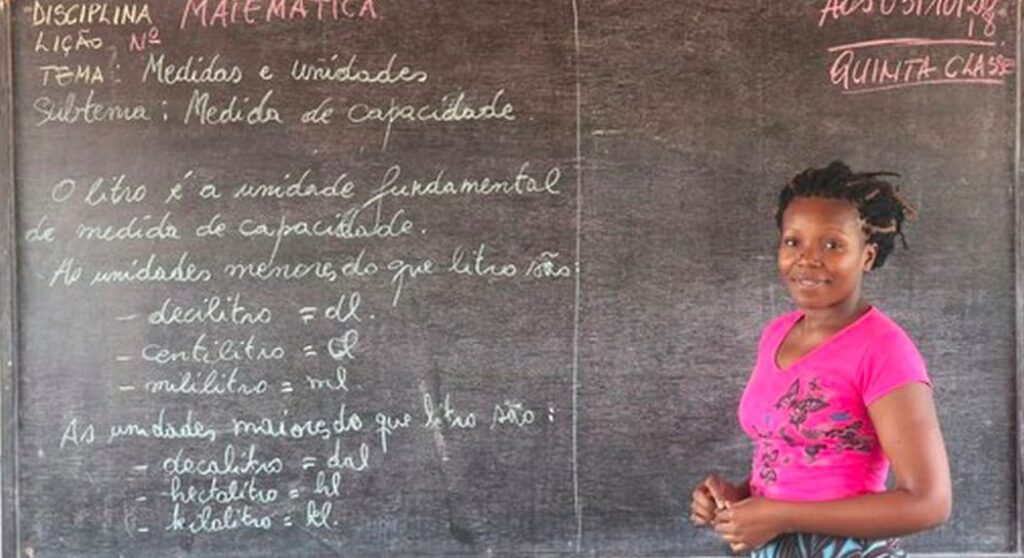 DISCIPLINA MATEMÁTICA
LIÇÃO Nº
TEMA: Medidas e unidades
Subtema: Medida de capacidade.
O litro é a unidade fundamental
de medida de capacidade.
As unidades menores do que litro são:
- decilitro = dl.
- centilitro = cl
- mililitro = ml
As unidades maiores do que litro são:
- decalitro = dal
- hectalitro = hl
- kilolitro = kl.
18
QUINTA CLASSE